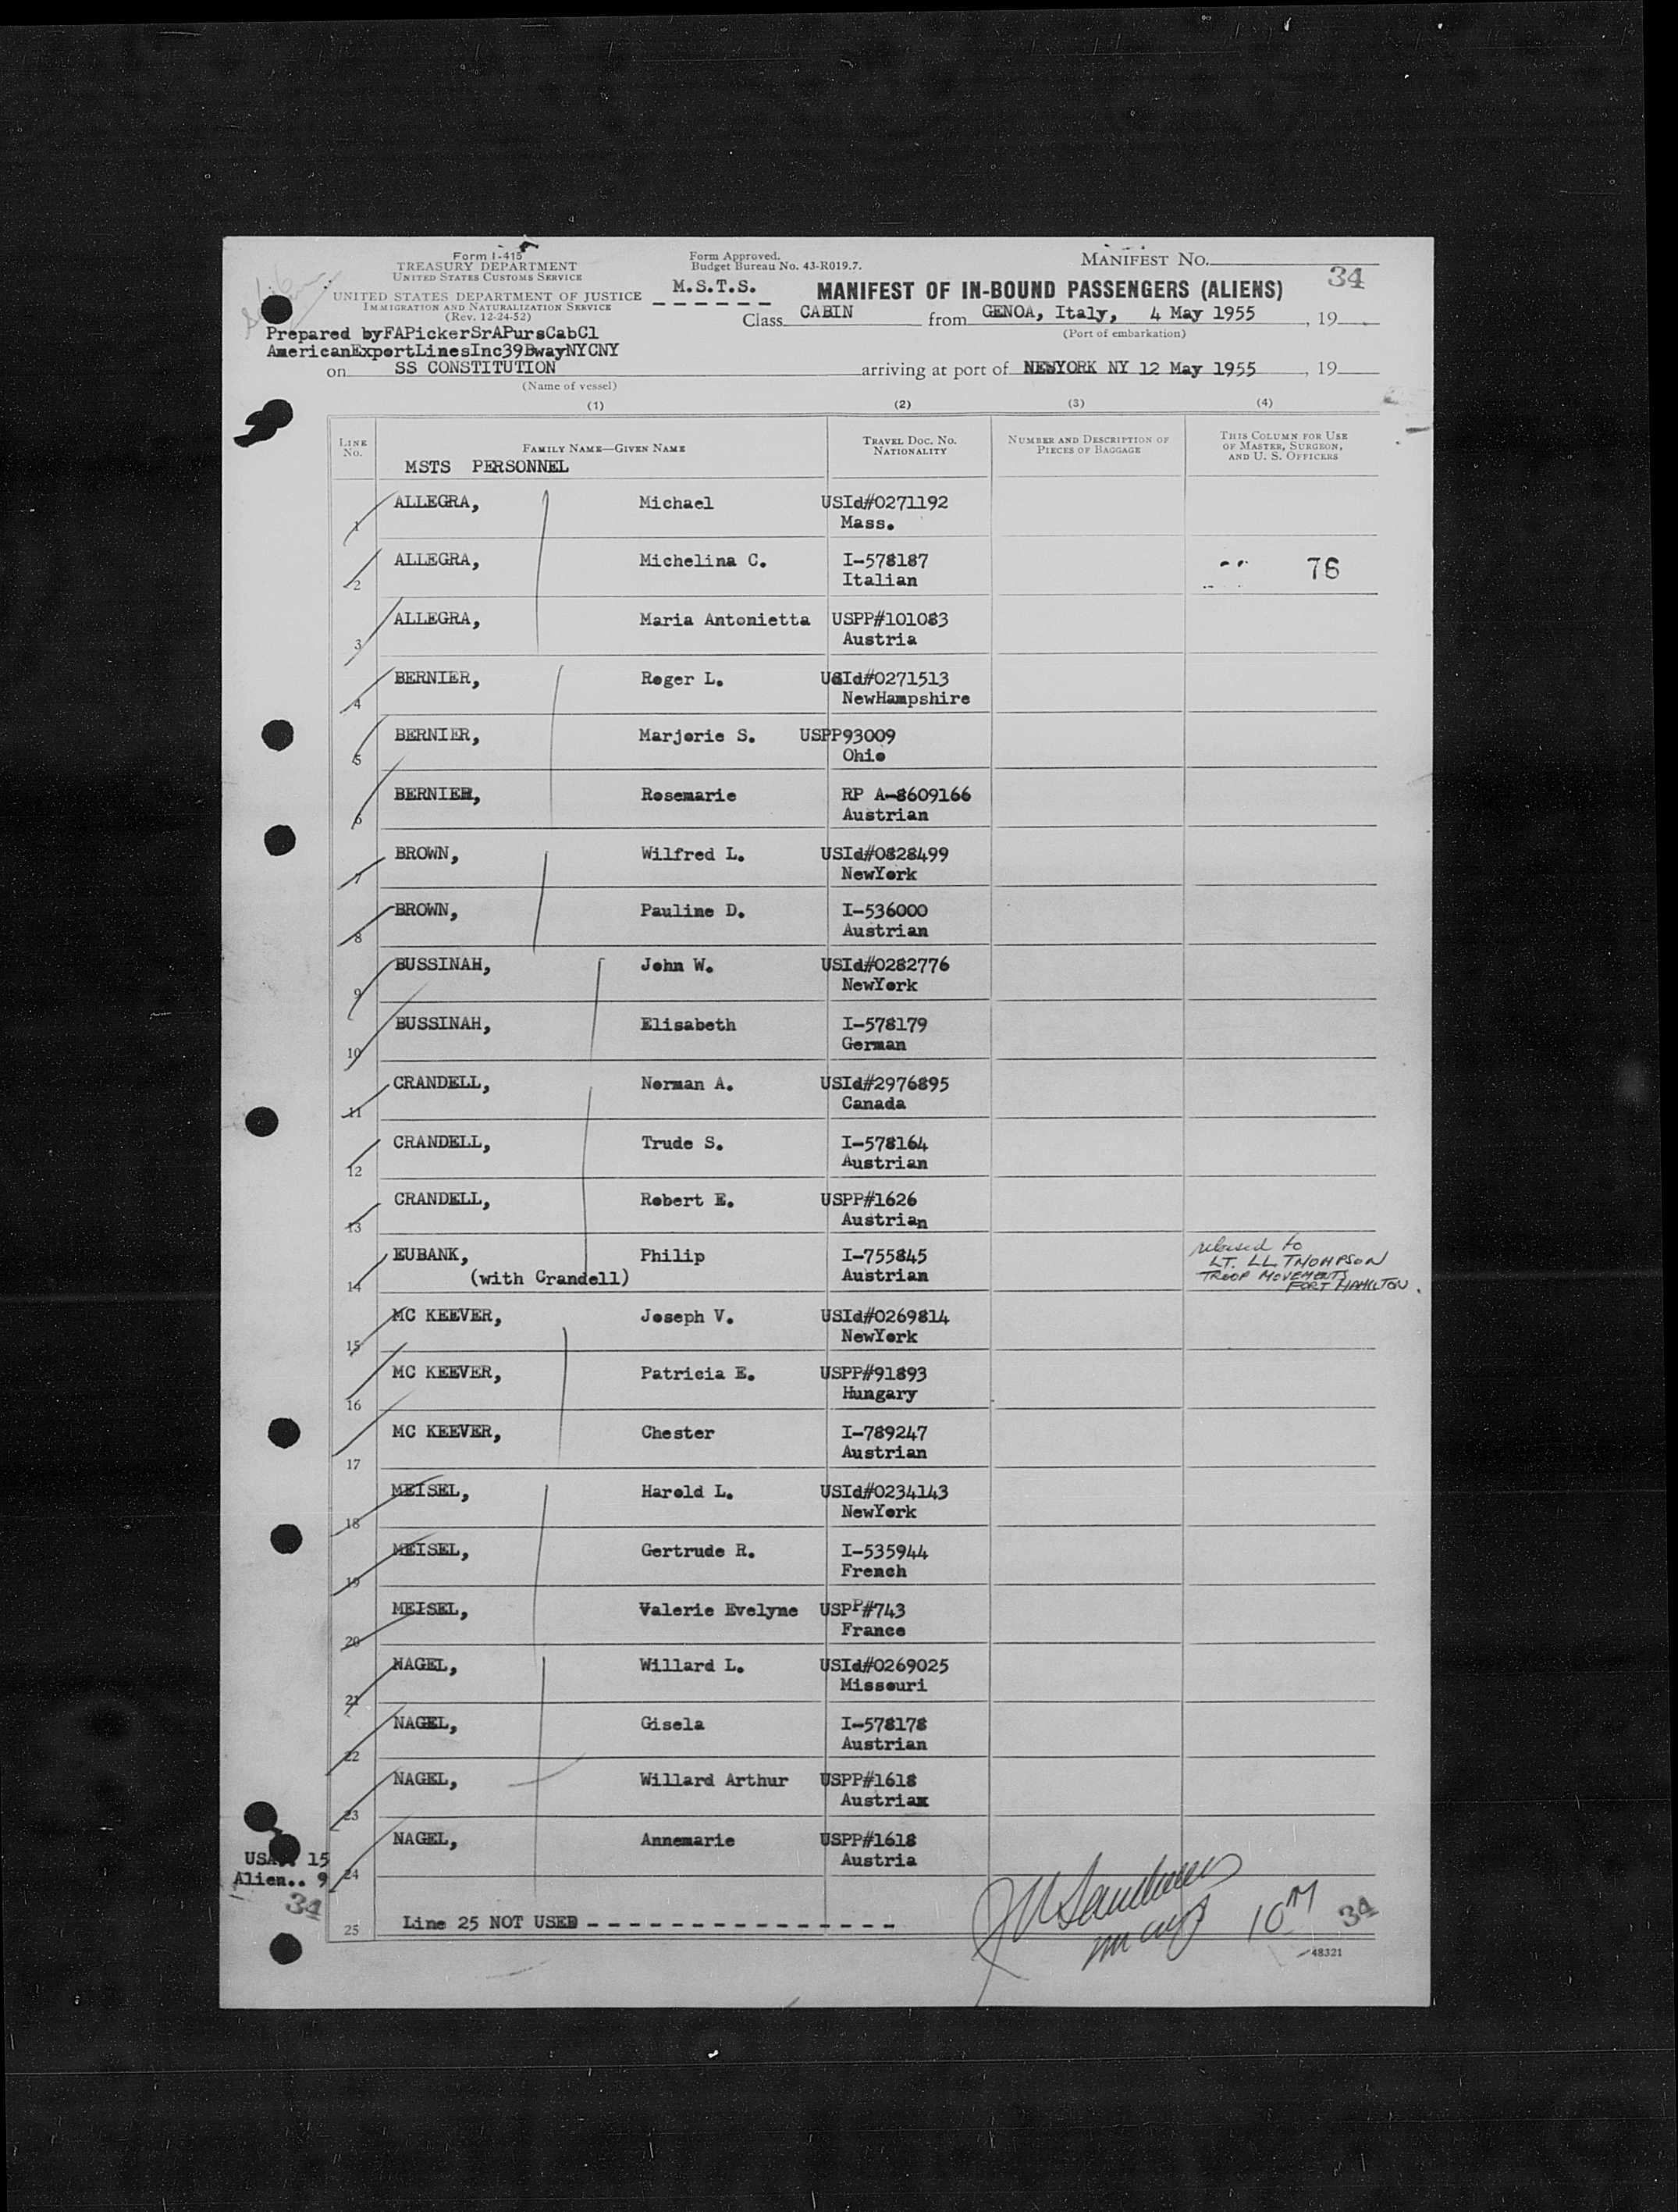 Form I-415
TREASURY DEPARTMENT
UNITED STATES CUSTOMS SERVICE
UNITED STATES DEPARTMENT OF JUSTICE
IMMIGRATION AND NATURALIZATION SERVICE
(Rev. 12-24-52)
Prepared byFAPickerSrAPursCabCl
AmericanExportLinesInc39BwayNYCNY
Form Approved.
Budget Bureau No. 43-R019.7.
M.S.T.S.
MANIFEST NO.
34
MANIFEST OF IN-BOUND PASSENGERS (ALIENS)
Class CABIN from GENOA, Italy, 4 May 1955, 19
(Port of embarkation)
on SS CONSTITUTION arriving at port of NEWYORK NY 12 May 1955, 19
(Name of vessel)
(1) (2) (3) (4)
LINE NO. FAMILY NAME—GIVEN NAME TRAVEL DOC. NO. NATIONALITY NUMBER AND DESCRIPTION OF PIECES OF BAGGAGE THIS COLUMN FOR USE OF MASTER, SURGEON, AND U. S. OFFICERS
MSTS PERSONNEL
1 ALLEGRA, Michael USId#0271192
Mass.
2 ALLEGRA, Michelina C. I-578187 76
Italian
3 ALLEGRA, Maria Antonietta USPP#101083
Austria
4 BERNIER, Roger L. USId#0271513
NewHampshire
5 BERNIER, Marjorie S. USPP93009
Ohio
6 BERNIER, Rosemarie RP A-8609166
Austrian
7 BROWN, Wilfred L. USId#0828499
NewYork
8 BROWN, Pauline D. I-536000
Austrian
9 BUSSINAH, John W. USId#0282776
NewYork
10 BUSSINAH, Elisabeth I-578179
German
11 CRANDELL, Norman A. USId#2976895
Canada
12 CRANDELL, Trude S. I-578164
Austrian
13 CRANDELL, Robert E. USPP#1626
Austrian
14 EUBANK, Philip I-755845
(with Crandell) Austrian
released to
LT. LL THOMPSON
TROOP MOVEMENTS
FORT HAMILTON.
15 MC KEEVER, Joseph V. USId#0269814
NewYork
16 MC KEEVER, Patricia E. USPP#91893
Hungary
17 MC KEEVER, Chester I-789247
Austrian
18 MEISEL, Harold L. USId#0234143
NewYork
19 MEISEL, Gertrude R. I-535944
French
20 MEISEL, Valerie Evelyne USPP#743
France
21 NAGEL, Willard L. USId#0269025
Missouri
22 NAGEL, Gisela I-578178
Austrian
23 NAGEL, Willard Arthur USPP#1618
Austriax
24 NAGEL, Annemarie USPP#1618
Austria
USA.. 15
Alien.. 9
34
25 Line 25 NOT USED - - - - - - - - - - - - - - -
10 M 34
48321